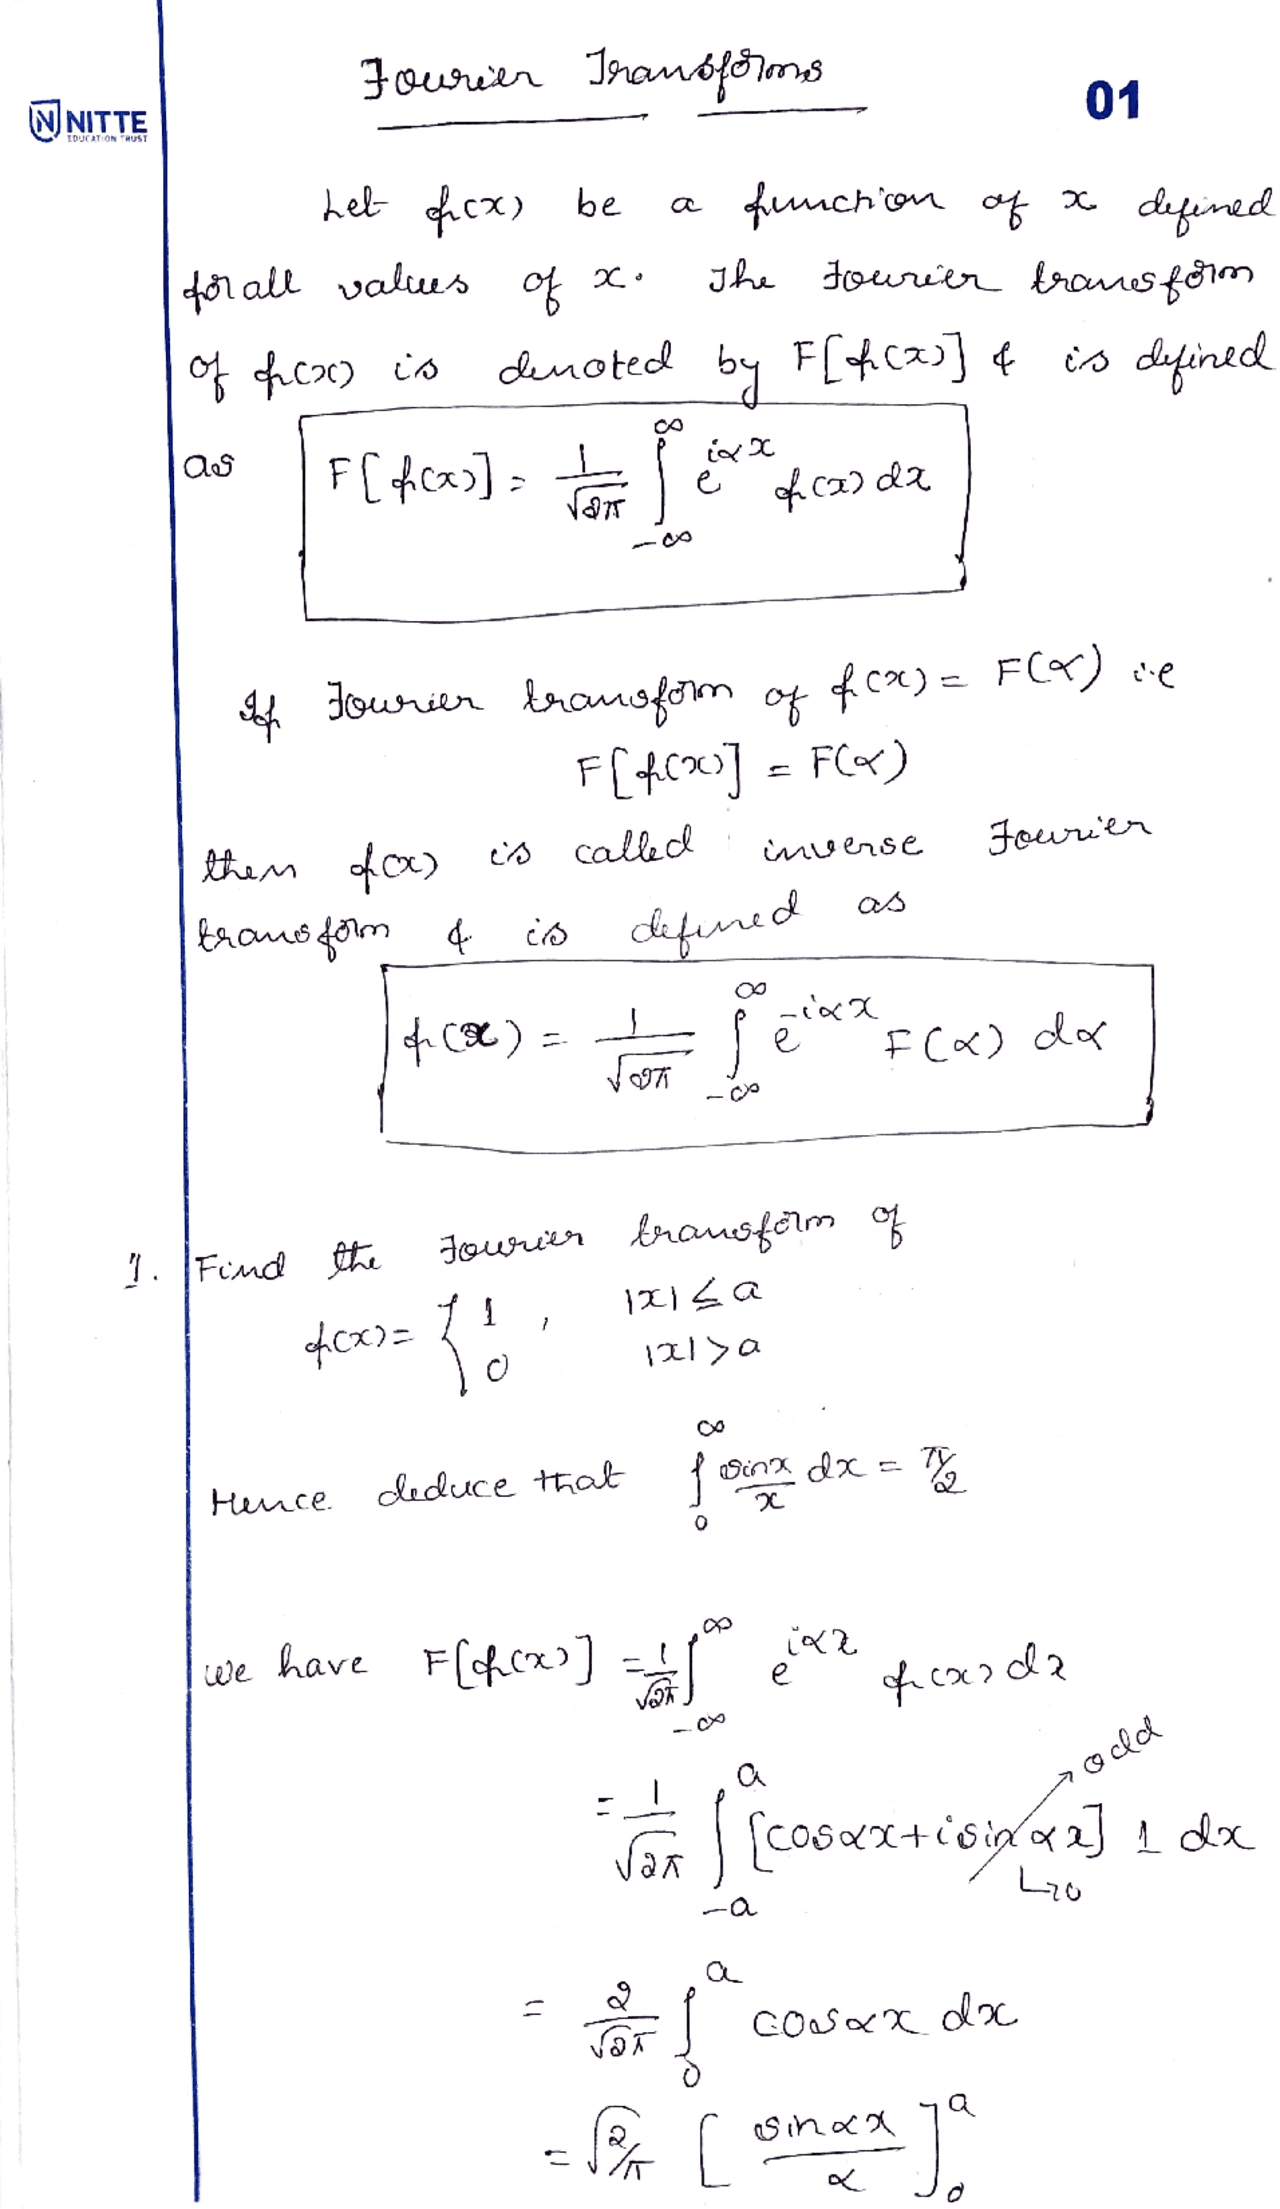 Fourier Transforms
01
NITTE
EDUCATION TRUST
Let f(x) be a function of x defined
for all values of x. The Fourier transform
of f(x) is denoted by F[f(x)] & is defined
as F[f(x)] = 1/√2π ∫_{-∞}^{∞} e^{iαx} f(x) dx
If Fourier transform of f(x) = F(α) i.e
F[f(x)] = F(α)
then f(x) is called inverse Fourier
transform & is defined as
f(x) = 1/√2π ∫_{-∞}^{∞} e^{-iαx} F(α) dα
1. Find the Fourier transform of
f(x) = { 1 , |x| ≤ a
0 |x| > a
Hence deduce that ∫_0^∞ sinx/x dx = π/2
we have F[f(x)] = 1/√2π ∫_{-∞}^{∞} e^{iαx} f(x) dx
= 1/√2π ∫_{-a}^{a} [cosαx + i sinαx] 1 dx → odd ↳0
= 2/√2π ∫_0^a cosαx dx
= √2/π [ sinαx/α ]_0^a